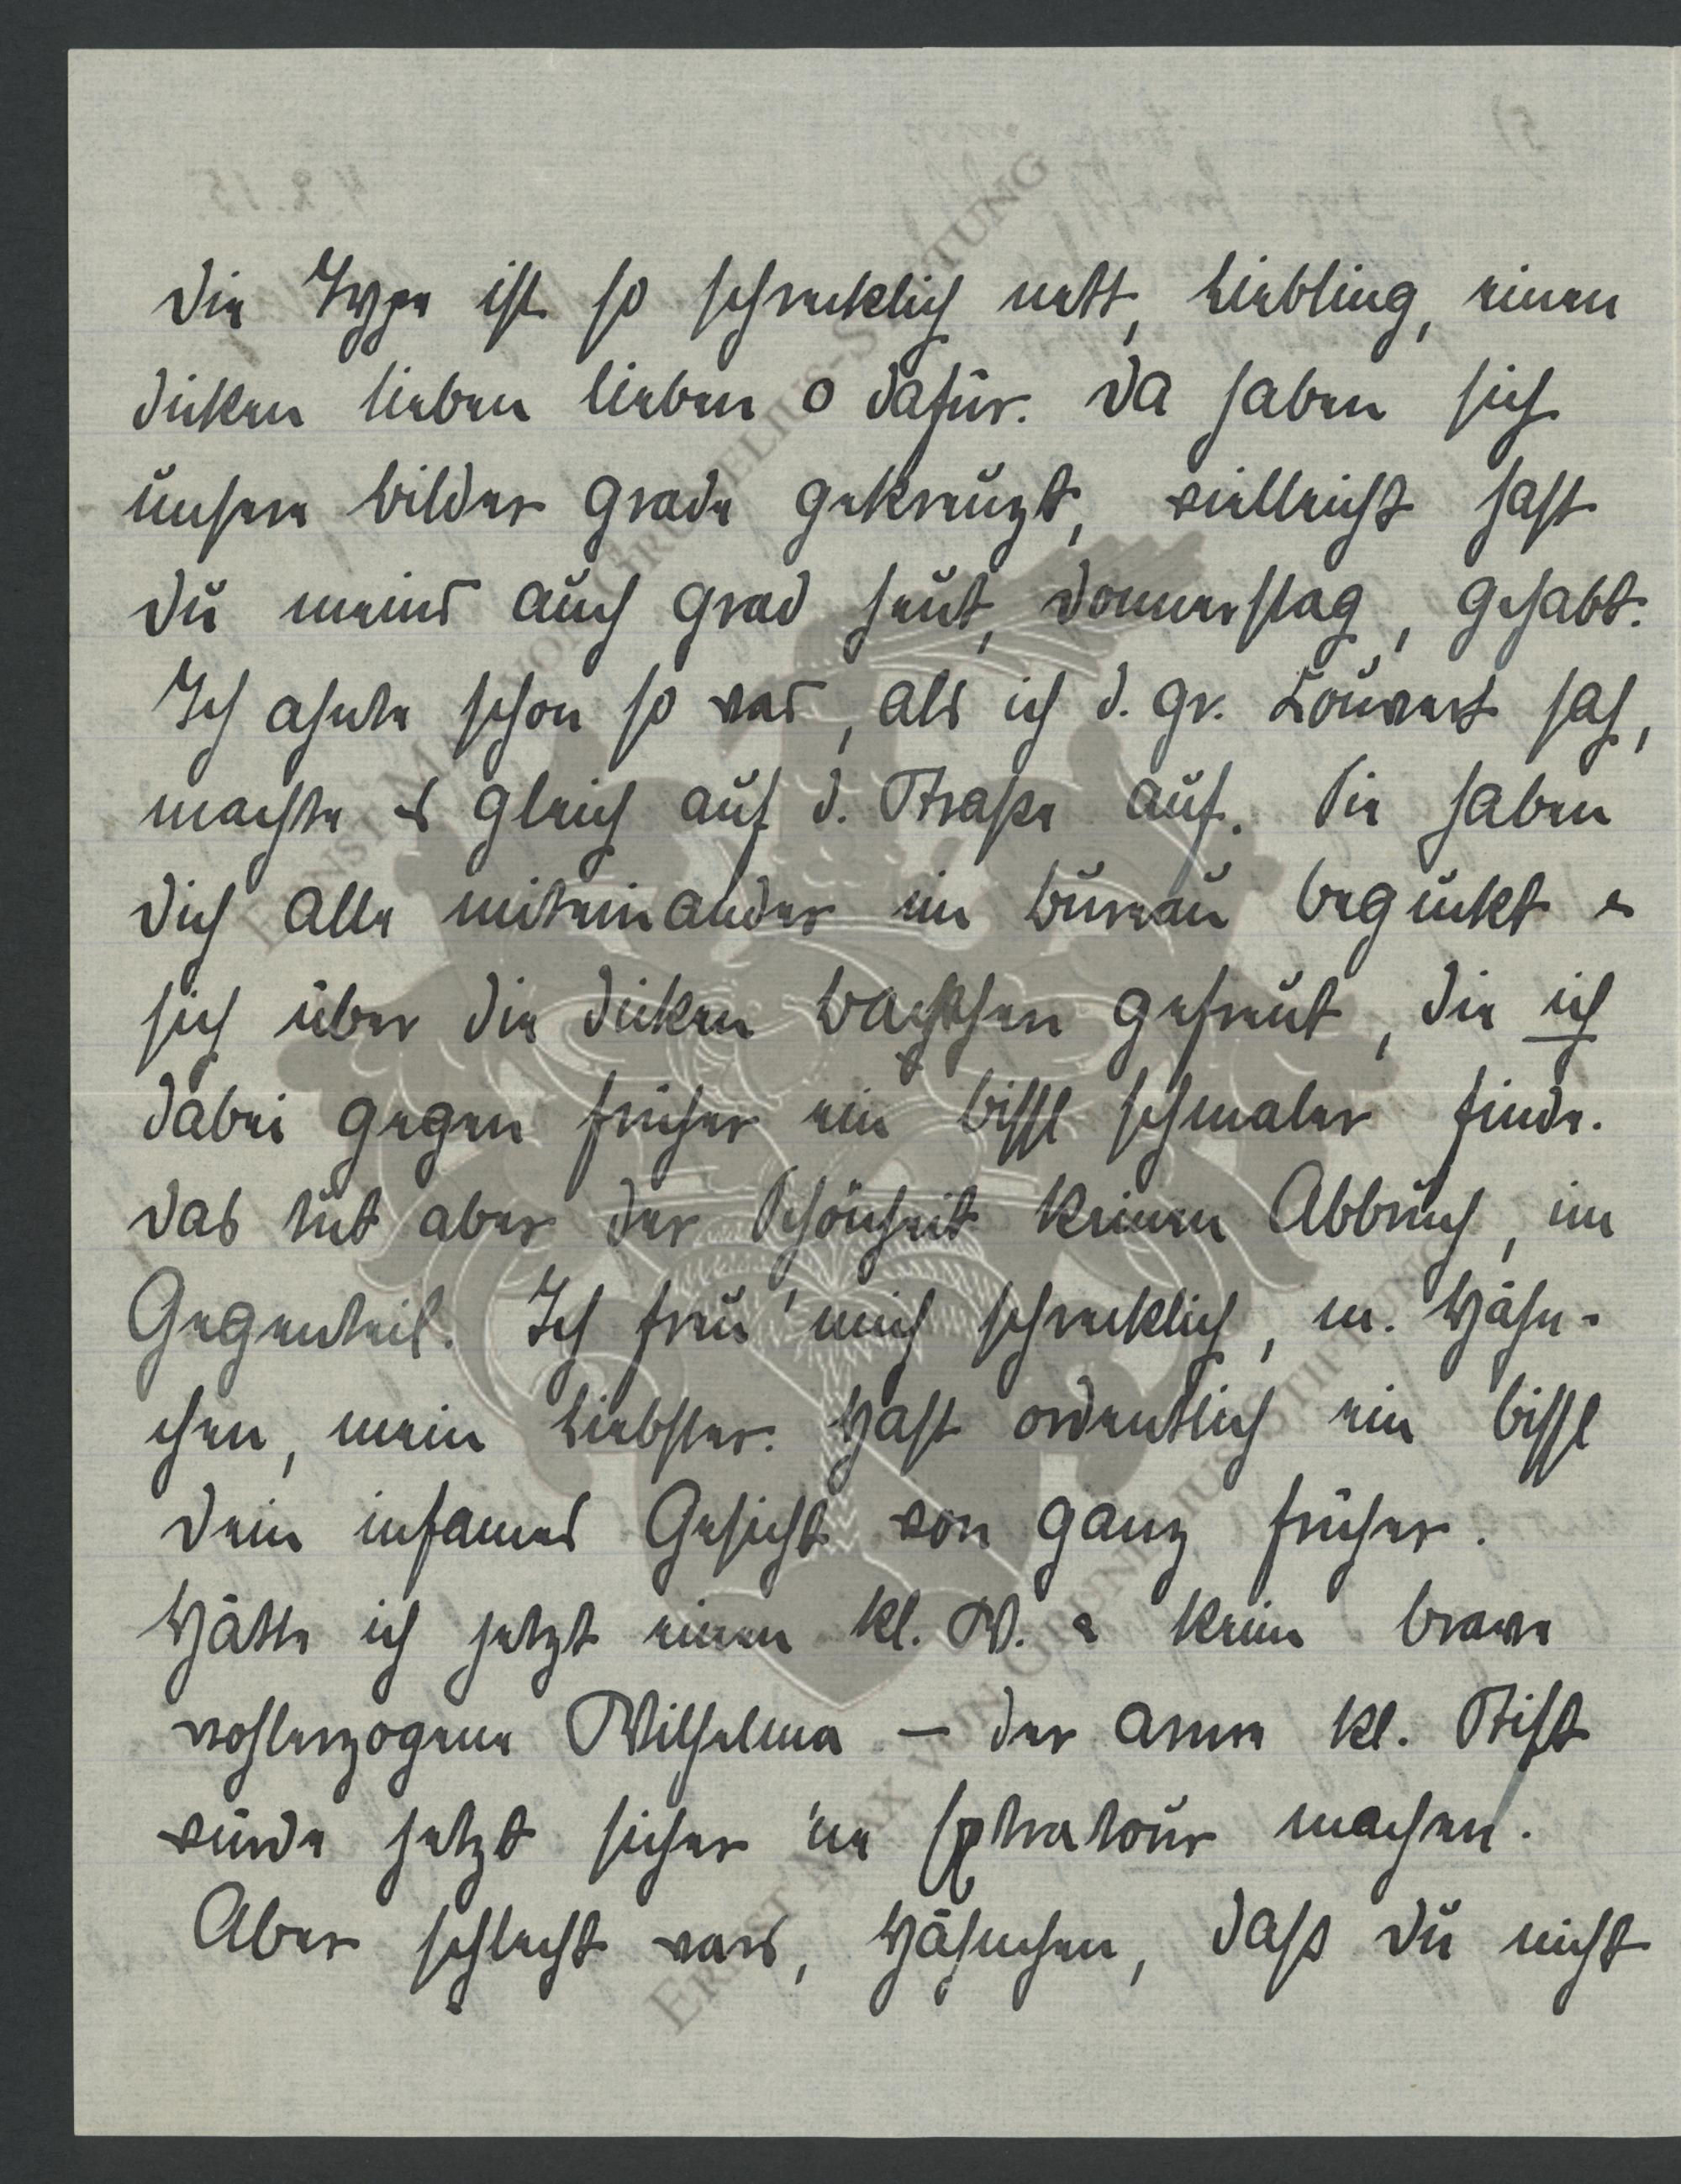 Die Type ist so schrecklich nett, Liebling, einen
dicken lieben lieben o dafür. Da haben sich
unsere Bilder grade gekreuzt, vielleicht hast
Du meins auch grad heut, Donnerstag, gehabt.
Ich ahnte schon so was, als ich d. gr. Kouvert sah,
machte es gleich auf d. Straße auf. Sie haben
Dich alle miteinander im Büreau beguckt &
sich über die dicken Backchen gefreut, die ich
dabei gegen früher ein bissl schmaler finde.
Das tut aber der Schönheit keinen Abbruch, im
Gegenteil. Ich freu' mich schrecklich, m. Hähn-
chen, mein Liebster. Hast ordentlich ein bissl
Dein infames Gesicht von ganz früher.
Hätte ich jetzt einen kl. W. & keine brave
wohlerzogene Wilhelma – der arme kl. Stift
würde jetzt sicher 'ne Extratour machen.
Aber schlecht wars, Hähnchen, dass Du nicht
ERNST MAX VON GRUNELIUS-STIFTUNG
ERNST MAX VON GRUNELIUS-STIFTUNG